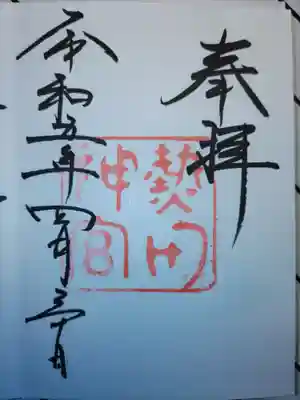 奉拝
熱田神宮
令和五年四月三十日